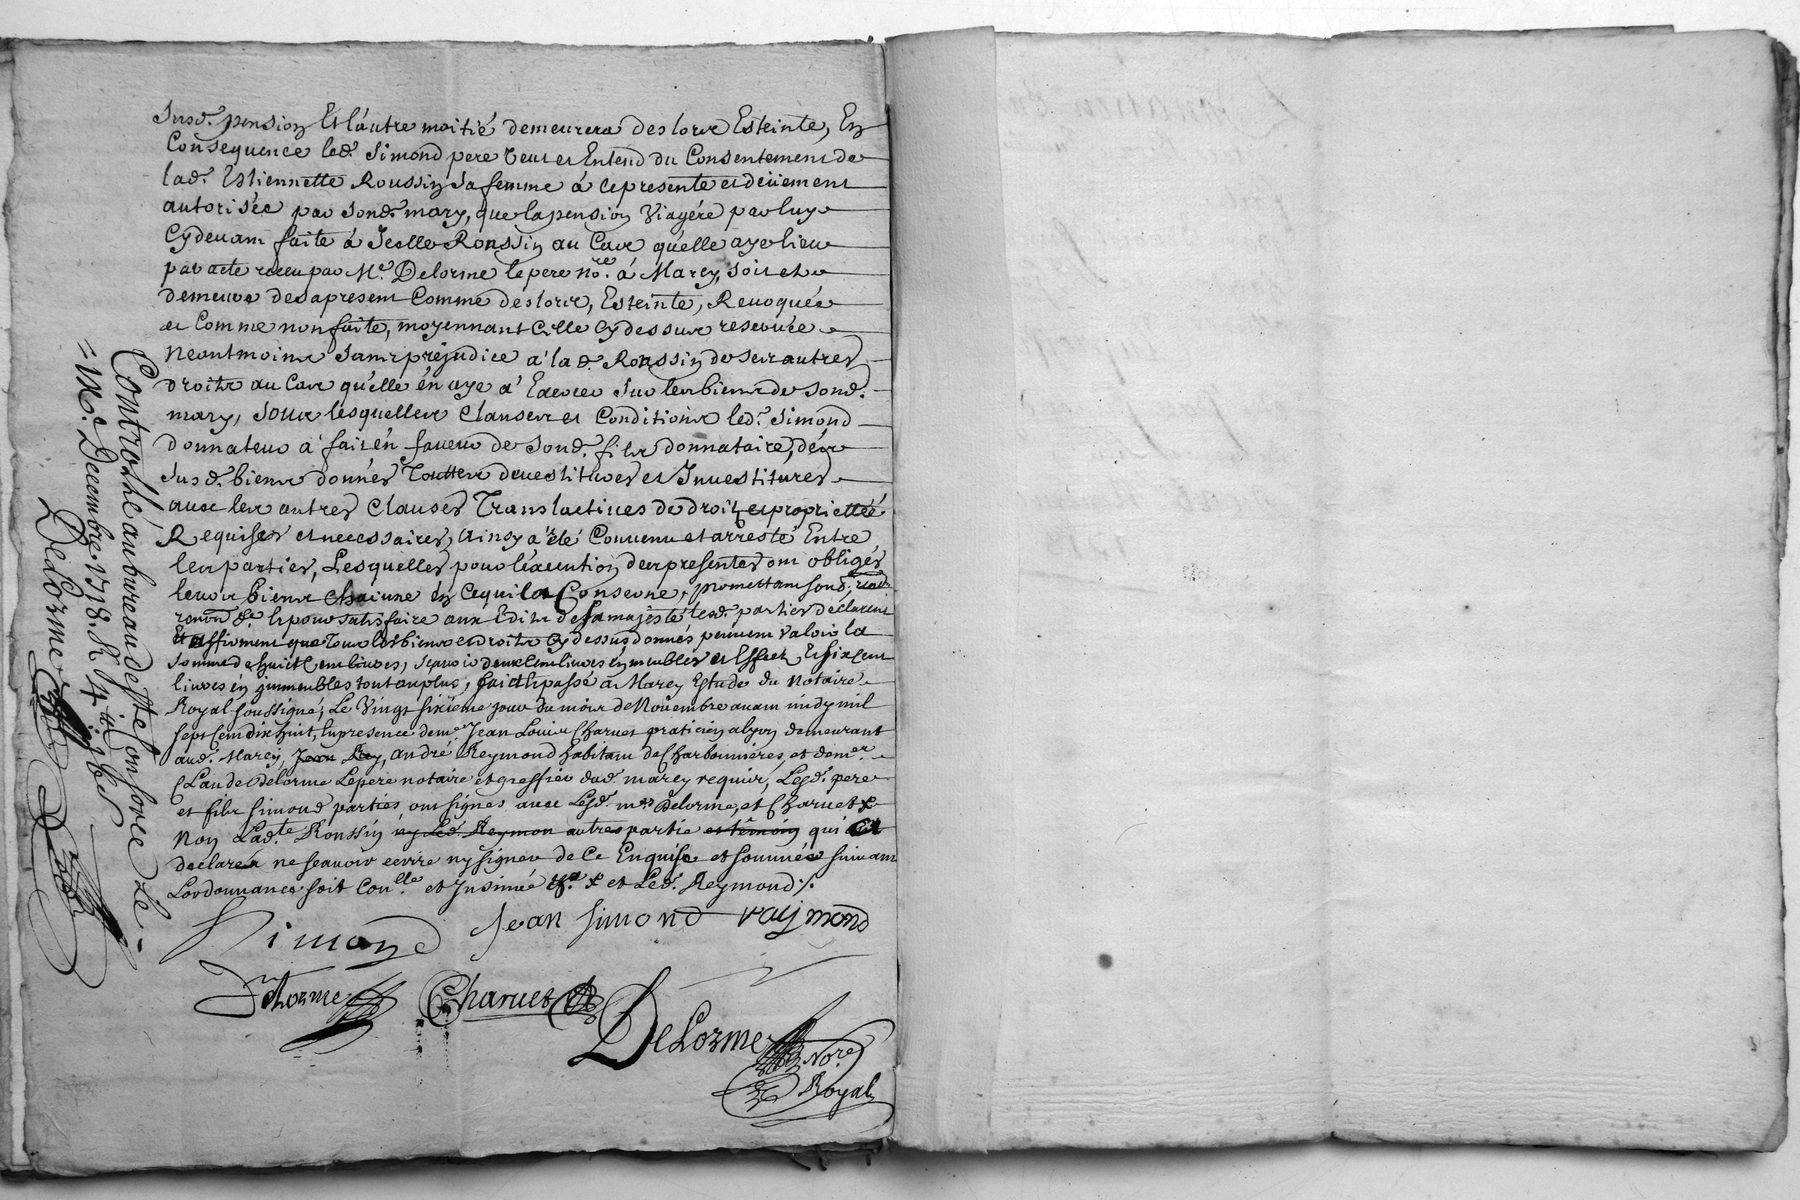 Susd. pension Et l'autre moitié demeurera deslors Esteinte, En
Consequence led. Simond pere veut et Entend du Consentement de
lad. Estiennette Roussin sa femme á ce presente et deüement
autorisée par sond. mary, que la pension Viagére par luy
Cydevant faite á Icelle Roussin au Cas qu'elle aye lieu
par acte receu par Me. Delorme le pere nore. á Marcy, soit et
demeure des apresent Comme deslors, Esteinte, Revoquée
et Comme non faite, moyennant Celle Cydessus reservée
Neantmoins sans préjudice a lad. Roussin de ses autres
droits au Cas qu'elle én aye a Exercer Sur les biens de sond.
mary, sous lesquelles Clauses et Conditions led. Simond
Donnateur a fait én faveur de sond. fils donnataire, des
Susd. biens donnés Touttes devestitures et Investitures
avec les autres Clauses Translatives de droit et proprietteé
Requises et necessaires, Ainsy a été Convenu et arresté Entre
les parties, Lesquelles pour l'éxecution des presentes ont obligés
leurs biens chacune én ce qui la Conserne, promettant sond.
renon &c. Et pour satisfaire aux Edits de sa majesté lesd. parties déclarent
Et affirment que tous les biens et droits Cy dessus donnés peuvent valoir la
somme de huict Cent livres, sçavoir deux Cent livres én meubles et Effects Et six Cent
livres én jmmeubles tout au plus, fait Et passé á Marcy Estude du Notaire
Royal soussigné, Le Vingt sixiéme jour du mois de Novembre avant midy mil
sept Cent dix huit, En presence de me. Jean Louis Charvet praticien a lyon demeurant
aud. Marcy, Jean Rey, andré Reymond habitant de Charbonnières, et de mer.
Claude Delorme Le pere notaire et greffier dud. marcy requis, Lesd. pere
et fils Simond parties ont signés avec Lesd. mes Delorme, et Charvet x
Non Ladte. Roussin ny Led. Reymon autres partie et témoin qui a
déclaré ne sçavoir écrire ny signer de ce Enquise et sommée suivant
L'ordonnance soit Conlle. et Insinué x et Led. Reymond ./.
Simond Jean Simond raymond
Delorme Charvet
DeLorme Nore
Royal
Controllé au bureau de st Consorce Le
1er. Decembre 1718. R 4
Delorme